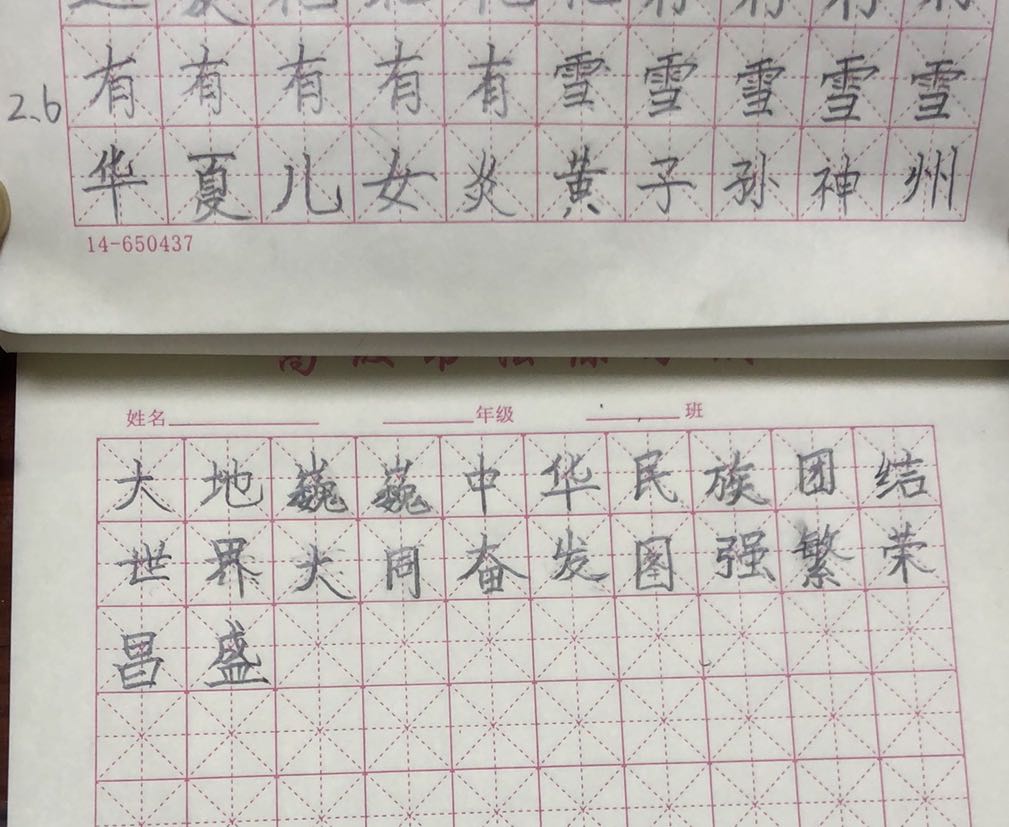 有有有有有雪雪雪雪雪
2.6
华夏儿女炎黄子孙神州
14-650437
姓名 年级 班
大地巍巍中华民族团结
世界大同奋发图强繁荣
昌盛